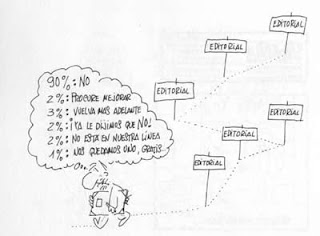 90%: NO
2%: PROCURE MEJORAR
3%: VUELVA MAS ADELANTE
2%: ¡YA LE DIJIMOS QUE NO!
2%: NO ESTA EN NUESTRA LÍNEA
1%: NOS QUEDAMOS UNO, GRATIS...
EDITORIAL
EDITORIAL
EDITORIAL
EDITORIAL
EDITORIAL
EDITORIAL